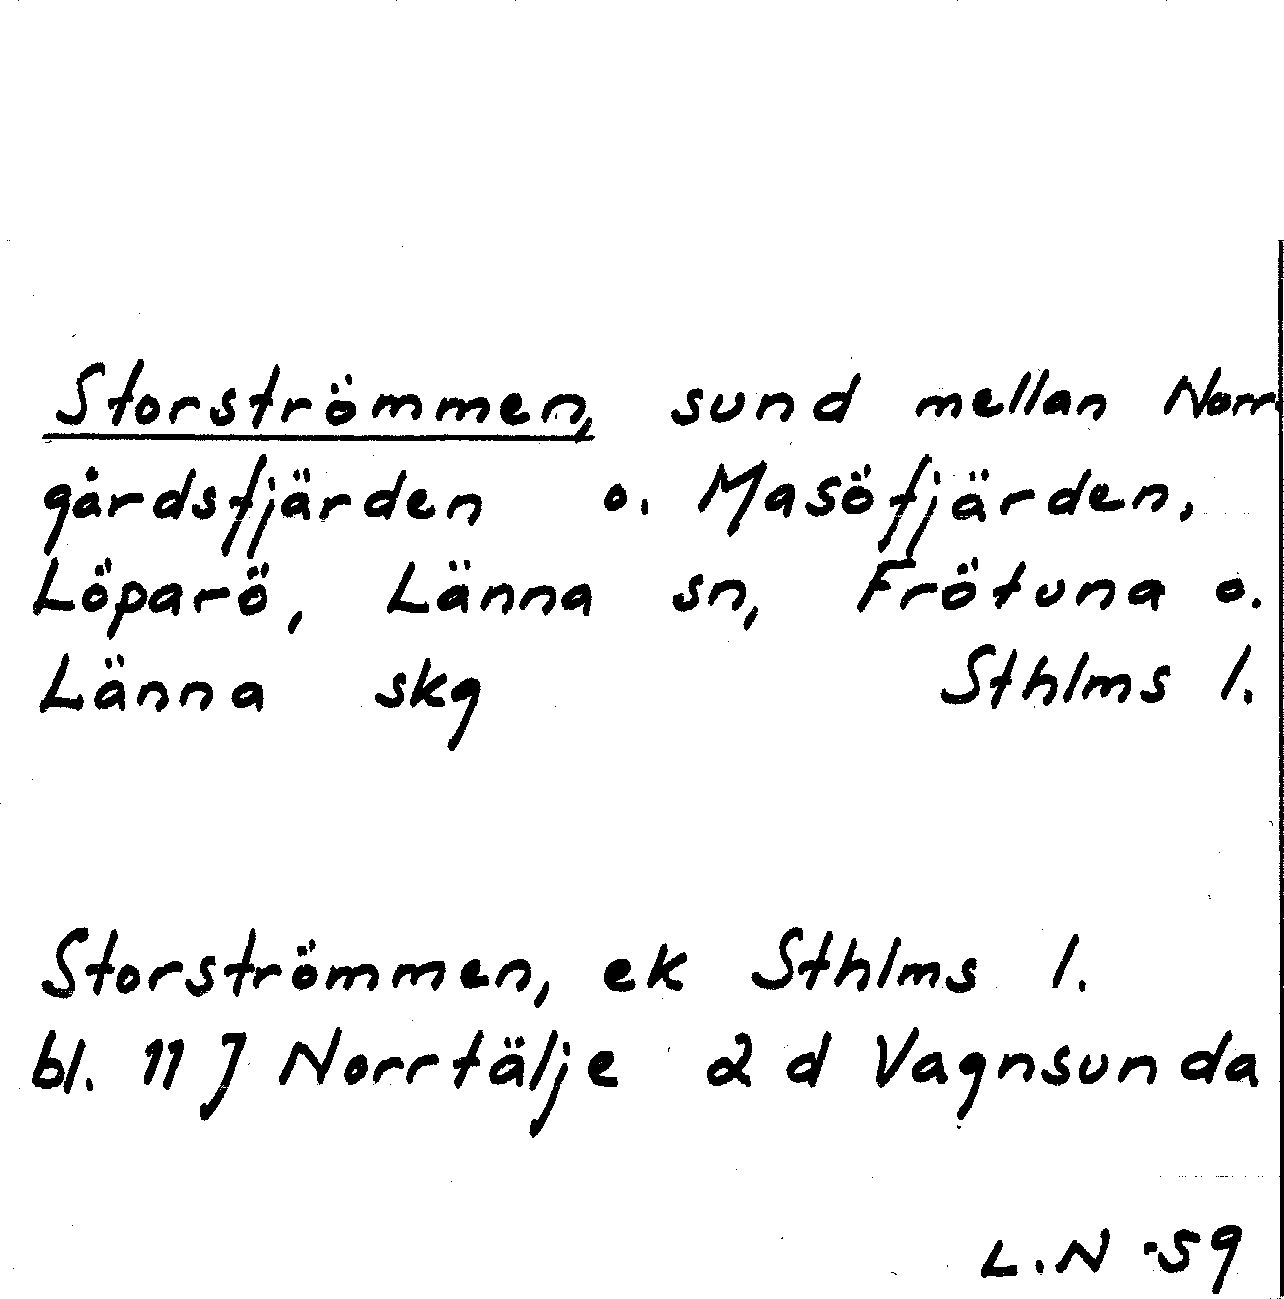 Storströmmen, sund mellan Norr-
gårdsfjärden o. Masöfjärden,
Löparö, Länna sn, Frötuna o.
Länna skg Sthlms l.
Storströmmen, ek Sthlms l.
bl. 11 J Norrtälje 2 d Vagnsunda
L.N -59